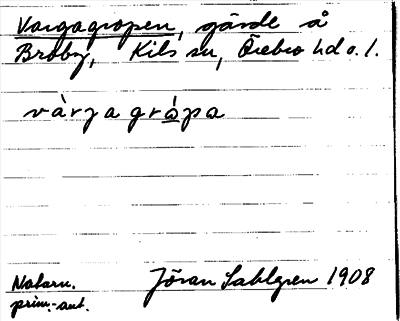 Vargagropen, gärde å
Broby, Kils sn, Örebro hd o. l.
vàrgagrópa
Naturn.
prim.-aut.
Jöran Sahlgren 1908